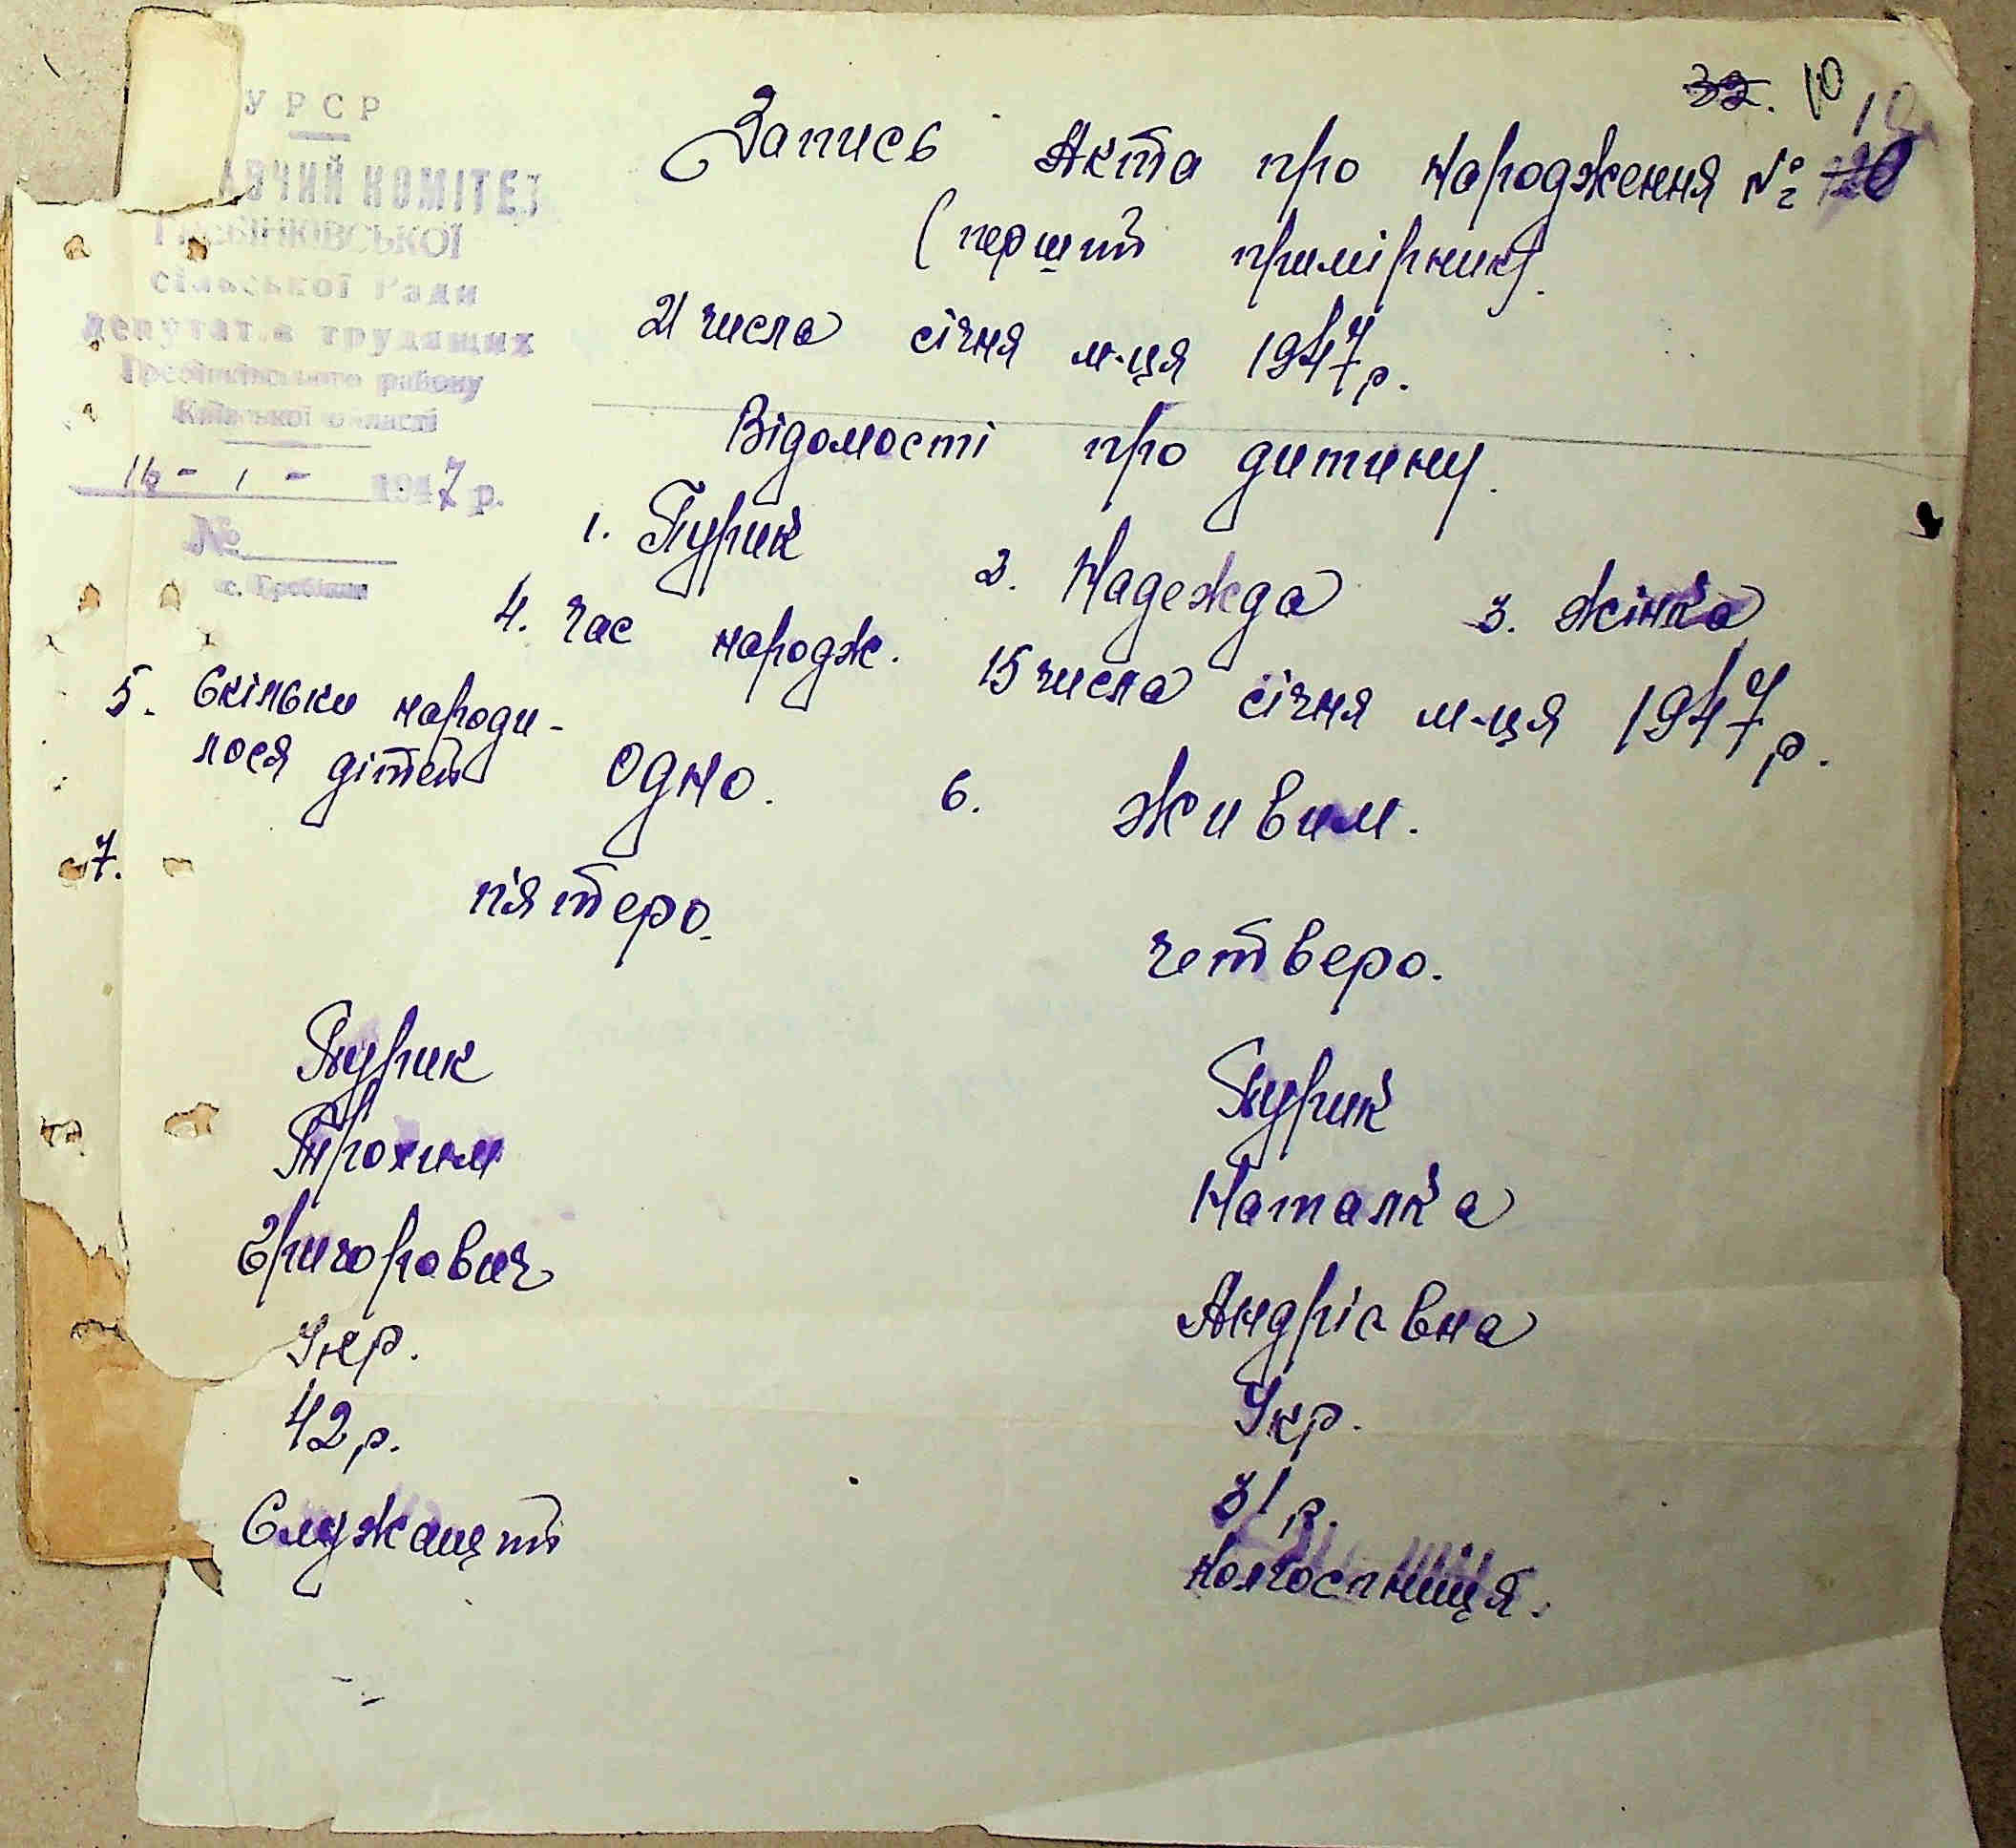 УРСР
КОМІТЕТ
Гребінківської
сільської Ради
депутатів трудящих
Гребінківського району
Київської області
16 - 1 - 1947 р.
№
с. Гребінки
32. 10
Запись Акта про народження №
(перший примірник).
21 числа січня м-ця 1947 р.
Відомості про дитину.
1. Пурик 2. Надежда 3. жінка
4. Час народж. 15 числа січня м-ця 1947 р.
5. Скільки народи-
лося дітей одно. 6. живим.
7. пятеро. четверо.
Пурик Пурик
Трохим Наталка
Григорович Андрієвна
Укр. Укр.
42 р. 31 р.
Служащий колгоспниця.